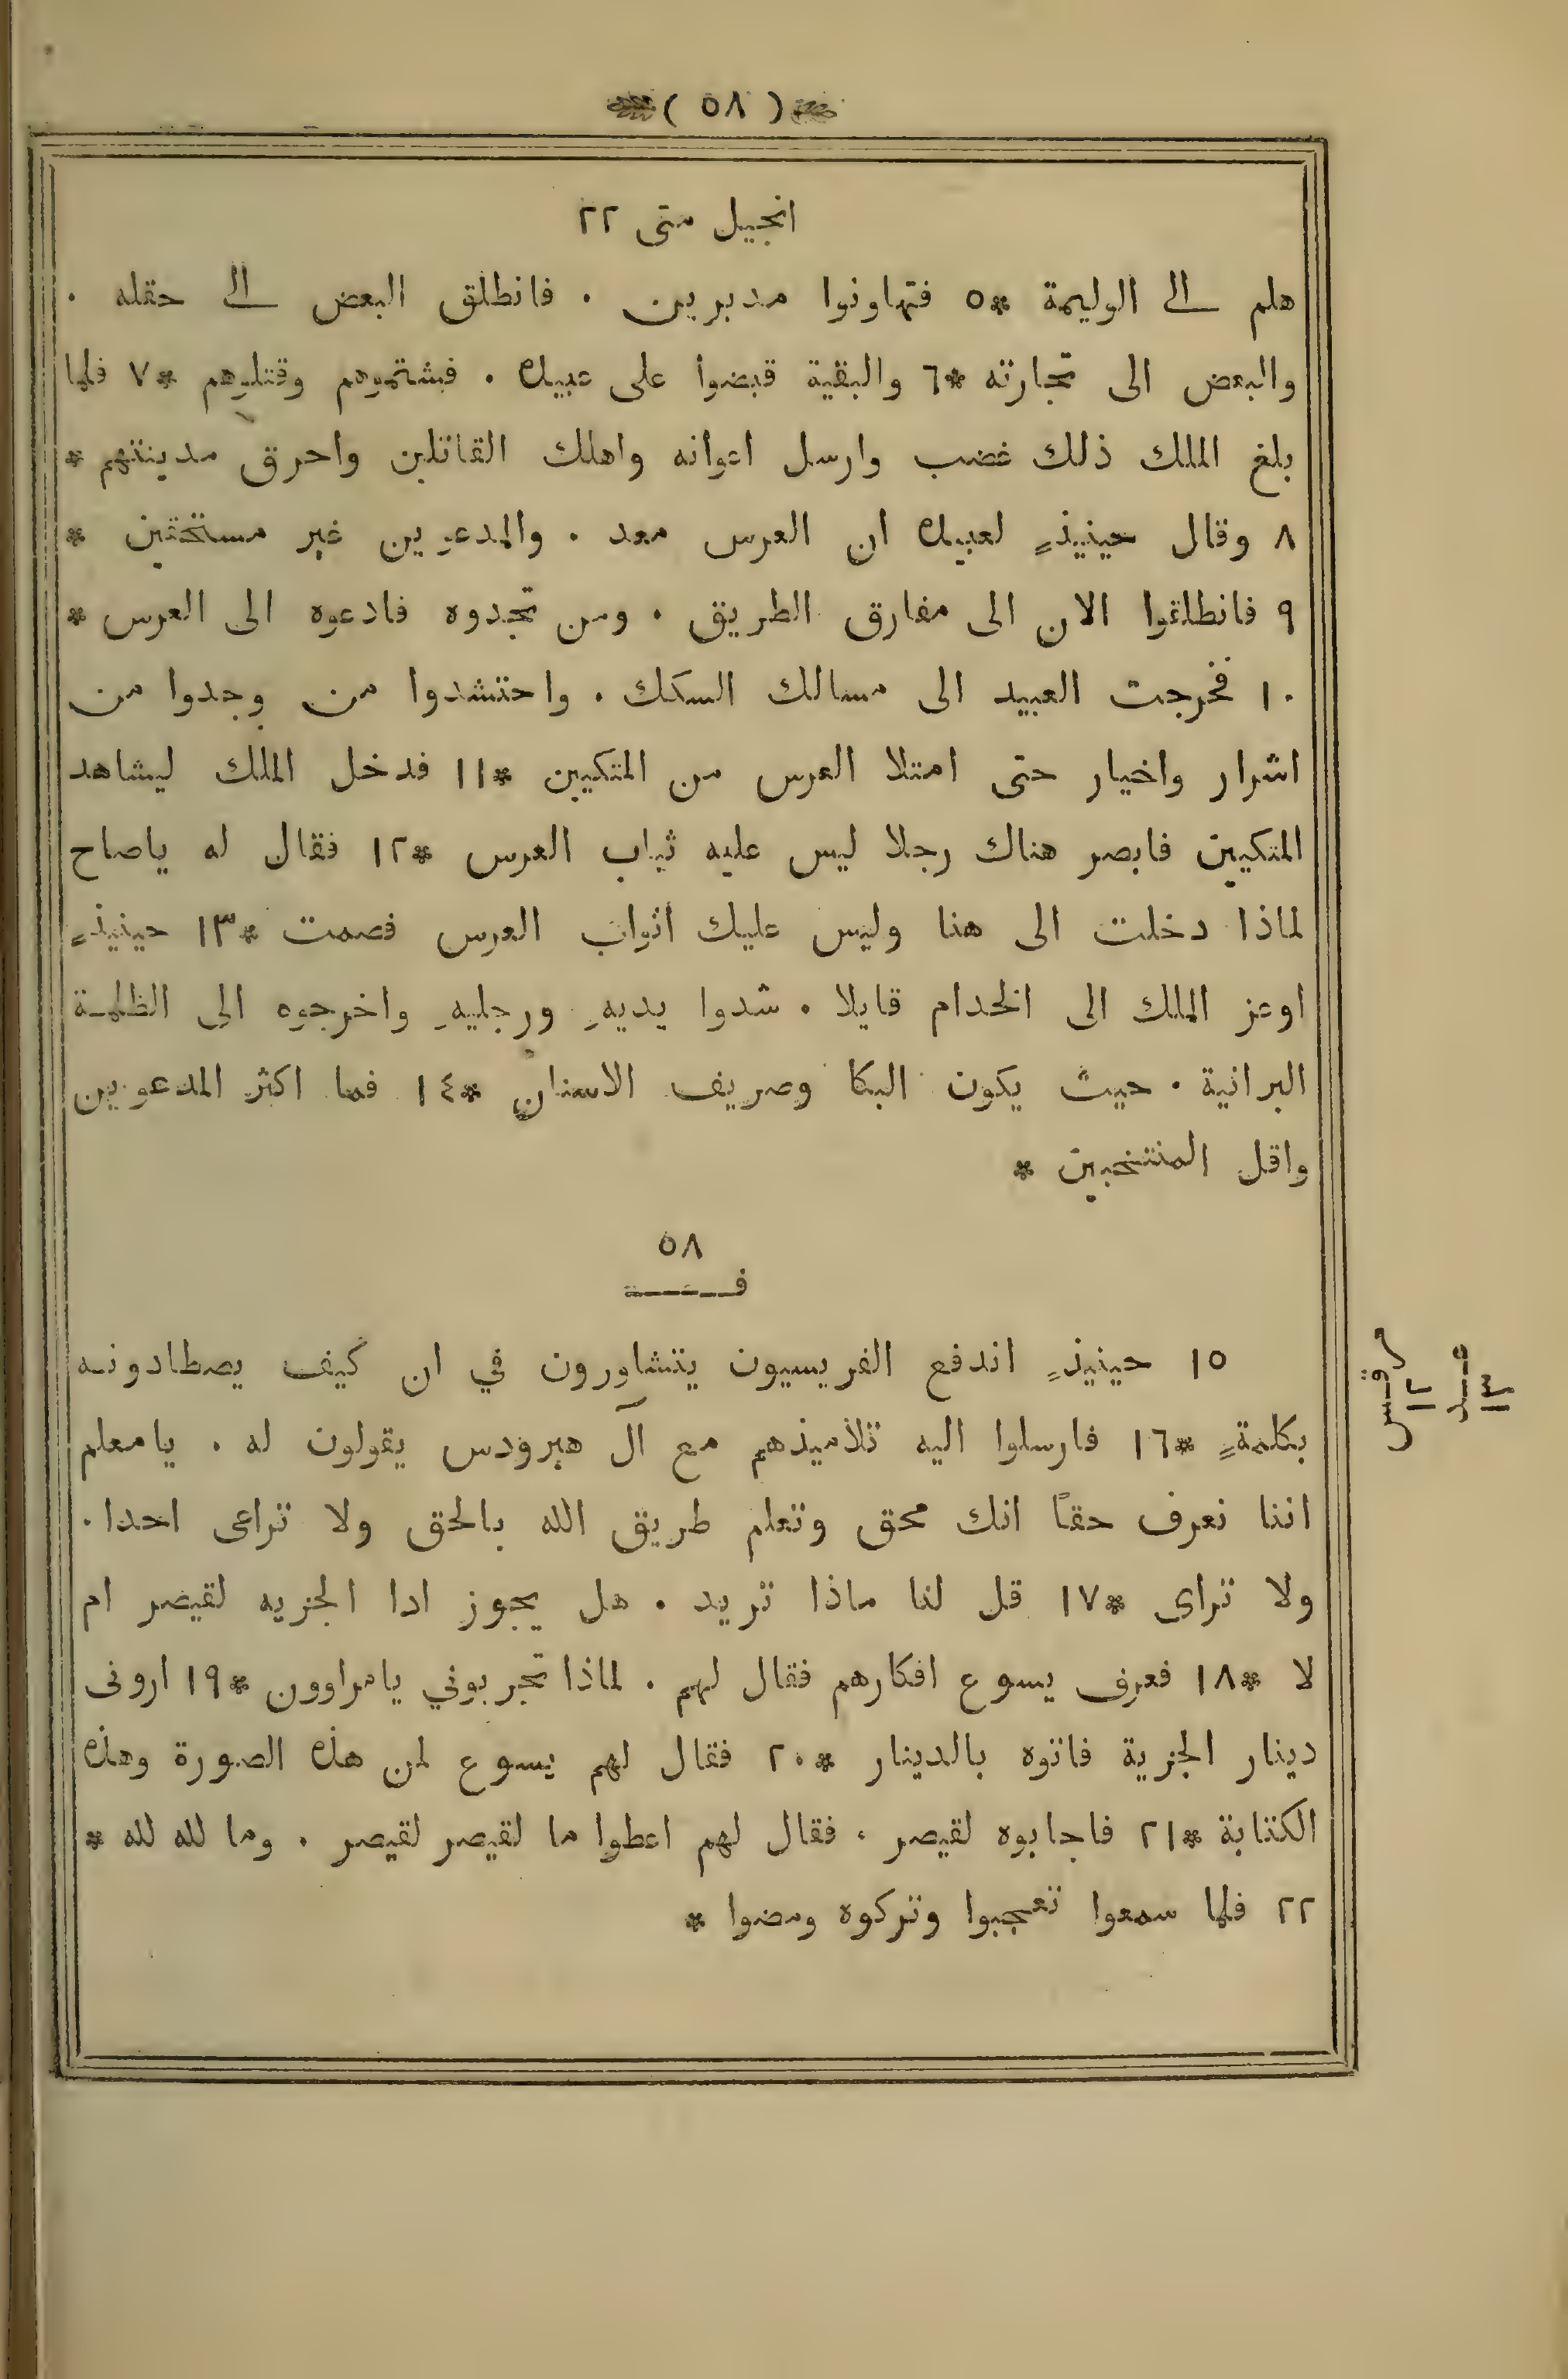 ( ٥٨ )
انجيل متى ٢٢
هلم الى الوليمة *٥ فتهاونوا مدبرين . فانطلق البعض الى حقله .
والبعض الى تجارته *٦ والبقية قبضوا على عبيده . فشتموهم وقتلوهم *٧ فلما
بلغ الملك ذلك غضب وارسل اعوانه واهلك القاتلين واحرق مدينتهم *
٨ وقال حينيذٍ لعبيده ان العرس معد . والمدعوين غير مستحقين *
٩ فانطلقوا الان الى مفارق الطريق . ومن تجدوه فادعوه الى العرس *
١٠ فخرجت العبيد الى مسالك السكك . واحتشدوا من وجدوا من
اشرار واخيار حتى امتلا العرس من المتكيين *١١ فدخل الملك ليشاهد
المتكيين فابصر هناك رجلا ليس عليه ثياب العرس *١٢ فقال له ياصاح
لماذا دخلت الى هنا وليس عليك اثواب العرس فصمت *١٣ حينيذٍ
اوعز الملك الى الخدام قايلا . شدوا يديهِ ورجليهِ واخرجوه الى الظلمة
البرانية . حيث يكون البكا وصريف الاسنان *١٤ فما اكثر المدعوين
واقل المنتخبين *
٥٨
ف
١٥ حينيذٍ اندفع الفريسيون يتشاورون في ان كيف يصطادونه
بكلمةٍ *١٦ فارسلوا اليه تلاميذهم مع آل هيرودس يقولون له . يامعلم
اننا نعرف حقاً انك محق وتعلم طريق الله بالحق ولا تراعى احدا .
ولا تراى *١٧ قل لنا ماذا تريد . هل يجوز ادا الجزيه لقيصر ام
لا *١٨ فعرف يسوع افكارهم فقال لهم . لماذا تجربوني يامراوون *١٩ ارونى
دينار الجزية فاتوه بالدينار *٢٠ فقال لهم يسوع لمن هذه الصورة وهذه
الكتابة *٢١ فاجابوه لقيصر . فقال لهم اعطوا ما لقيصر لقيصر . وما لله لله *
٢٢ فلما سمعوا تعجبوا وتركوه ومضوا *
مرقس
١٢
١٣